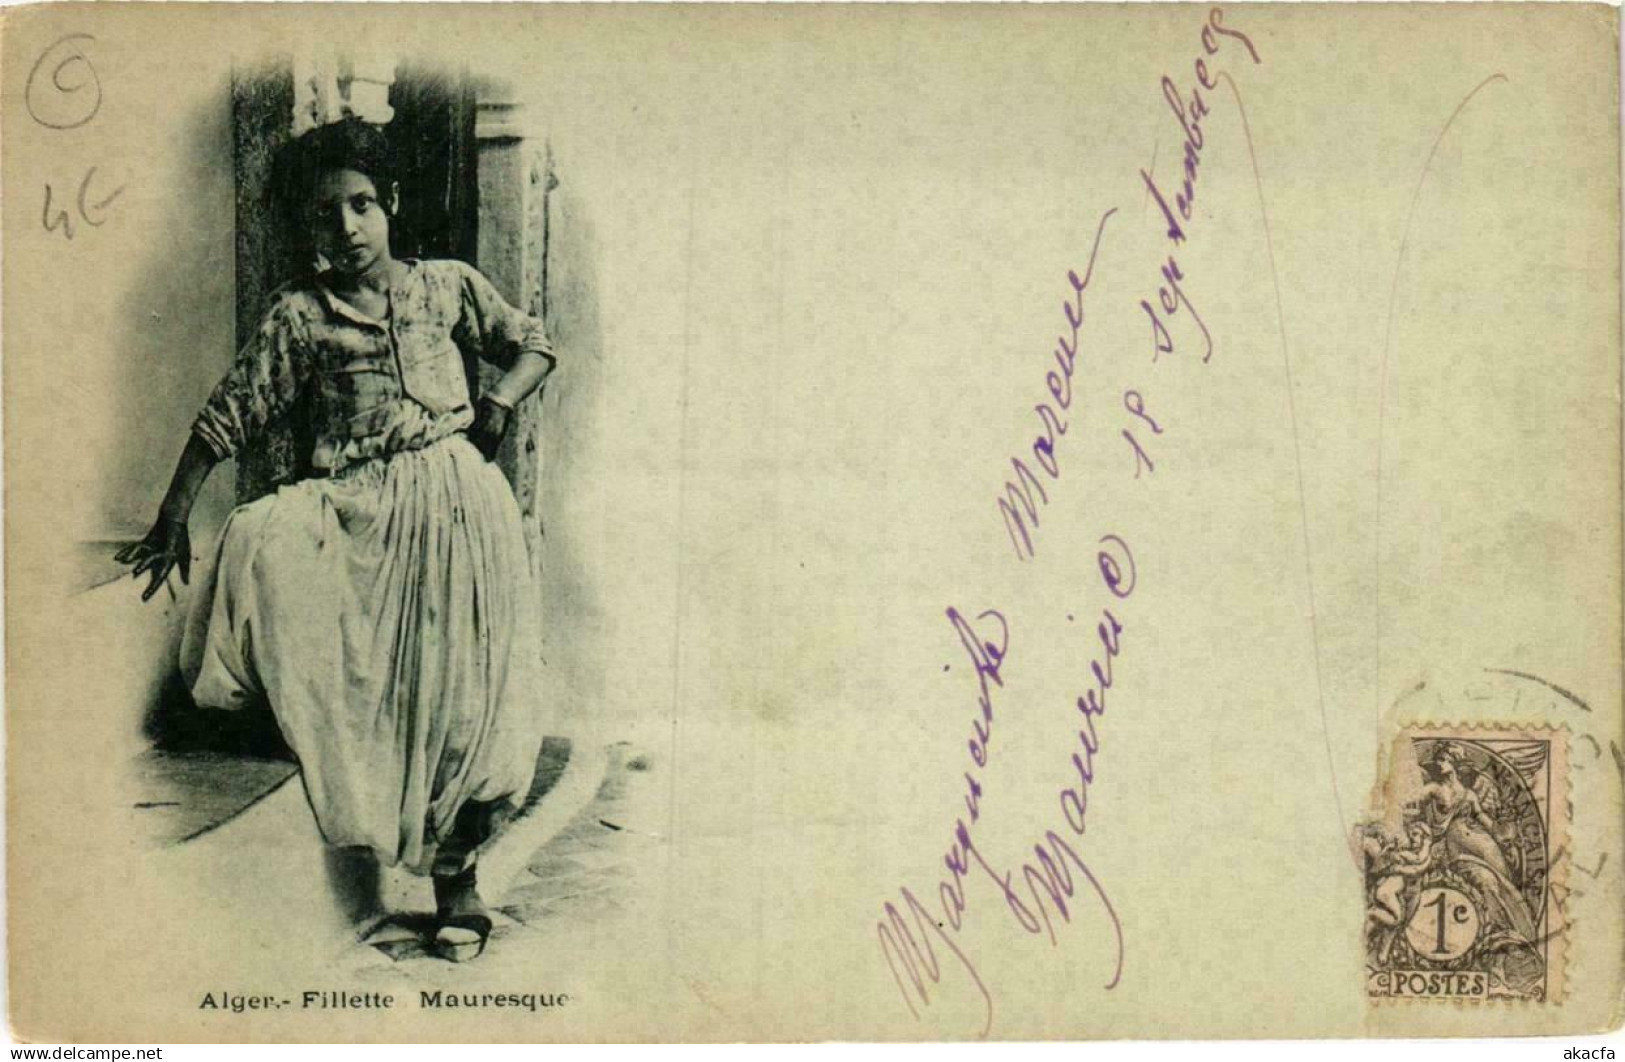 4€
Alger.- Fillette Mauresque
Marguerite
Maurice
18 septembre
FRANÇAISE
1c
POSTES
akacfa
delcampe.net